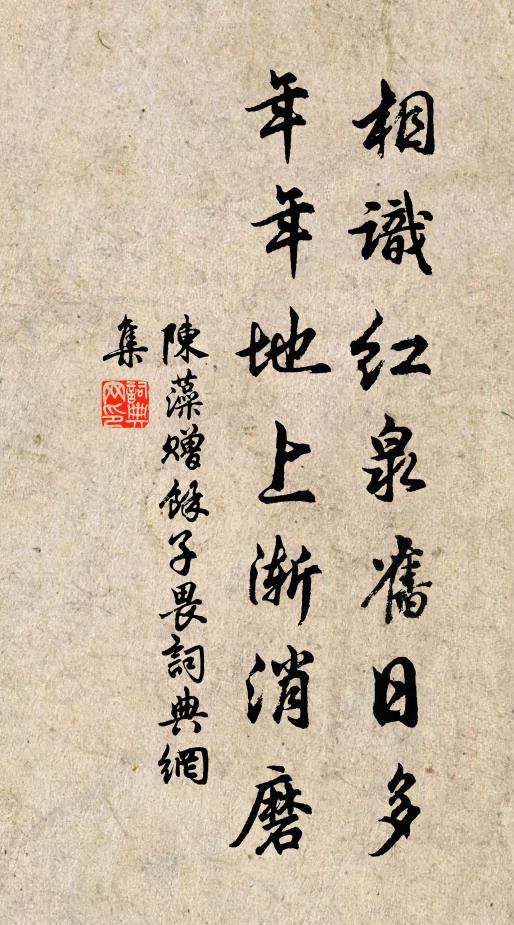 相識紅泉舊日多
年年地上漸消磨
陳藻贈餘子畏詞典網
集
詞典
网印